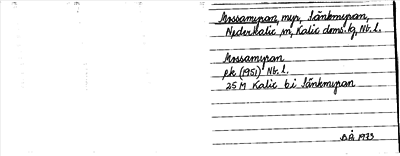 Mossamyran, myr, Sänkmyran,
Nederkalix sn, Kalix doms. fg, Nb. l.
Mossamyran
ek (1951) Nb. l.
25 M Kalix bi Sänkmyran
1973